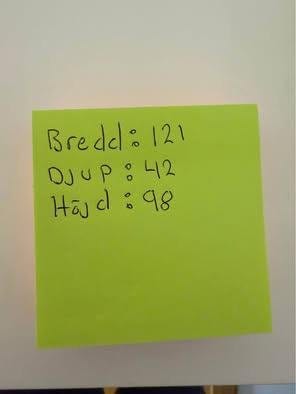 Bredd: 121
Djup: 42
Höjd: 98